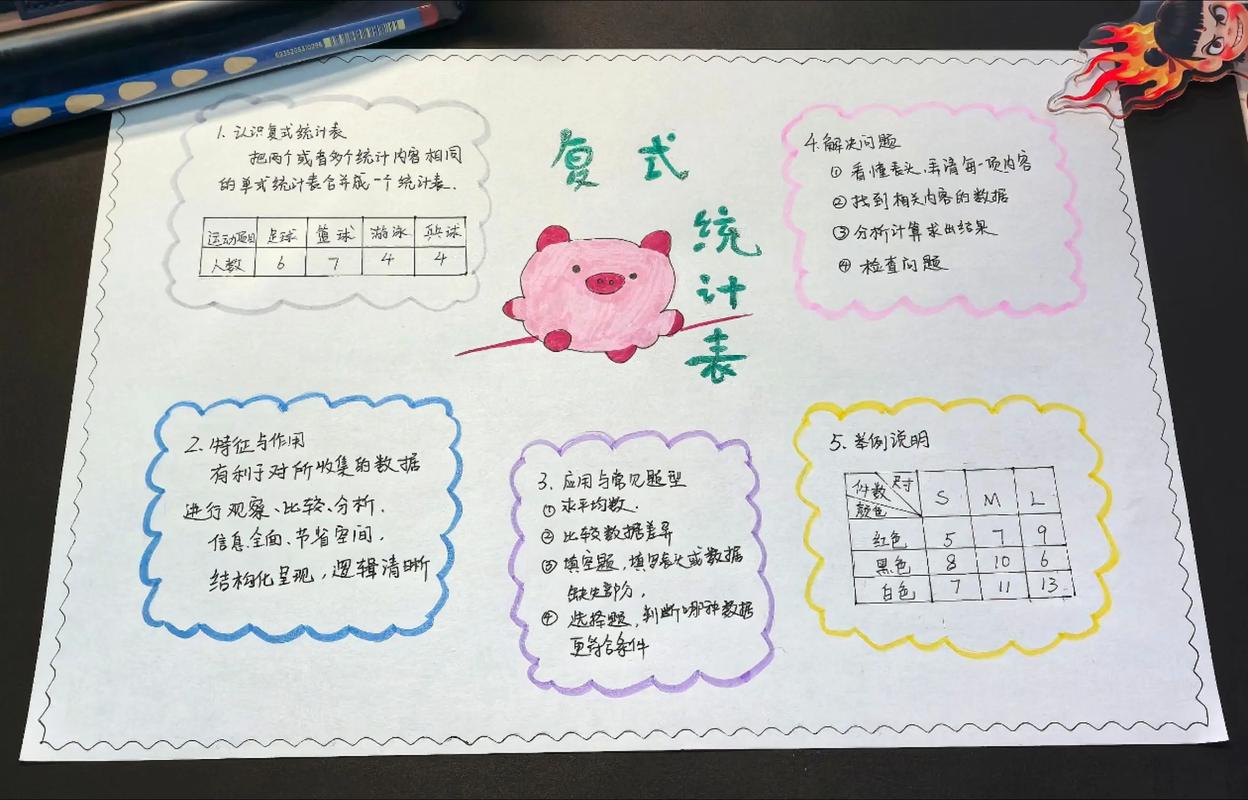 6935205310296
复式
统
计
表
1. 认识复式统计表
把两个或者多个统计内容相同
的单式统计表合并成一个统计表.
运动项目 足球 篮球 游泳 乒球
人数 6 7 4 4
2. 特征与作用
有利于对所收集的数据
进行观察、比较、分析.
信息全面、节省空间,
结构化呈现,逻辑清晰
3. 应用与常见题型
① 求平均数.
② 比较数据差异
③ 填空题,填写表头或数据
缺失部分,
④ 选择题,判断哪种数据
更符合条件
4.解决问题
① 看懂表头,弄清每一项内容
② 找到相关内容的数据
③ 分析计算求出结果
④ 检查问题
5. 举例说明
件数 尺寸 颜色 S M L
红色 5 7 9
黑色 8 10 6
白色 7 11 13